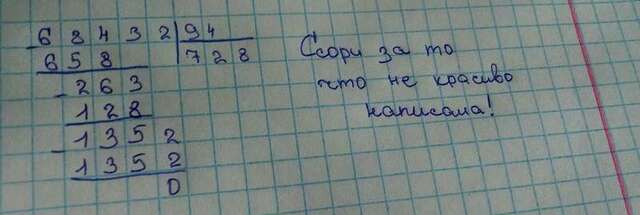 6 8 4 3 2 | 94
6 5 8 | 7 2 8
- 2 6 3
1 2 8
- 1 3 5 2
1 3 5 2
0
Ссори за то
что не красиво
написала!